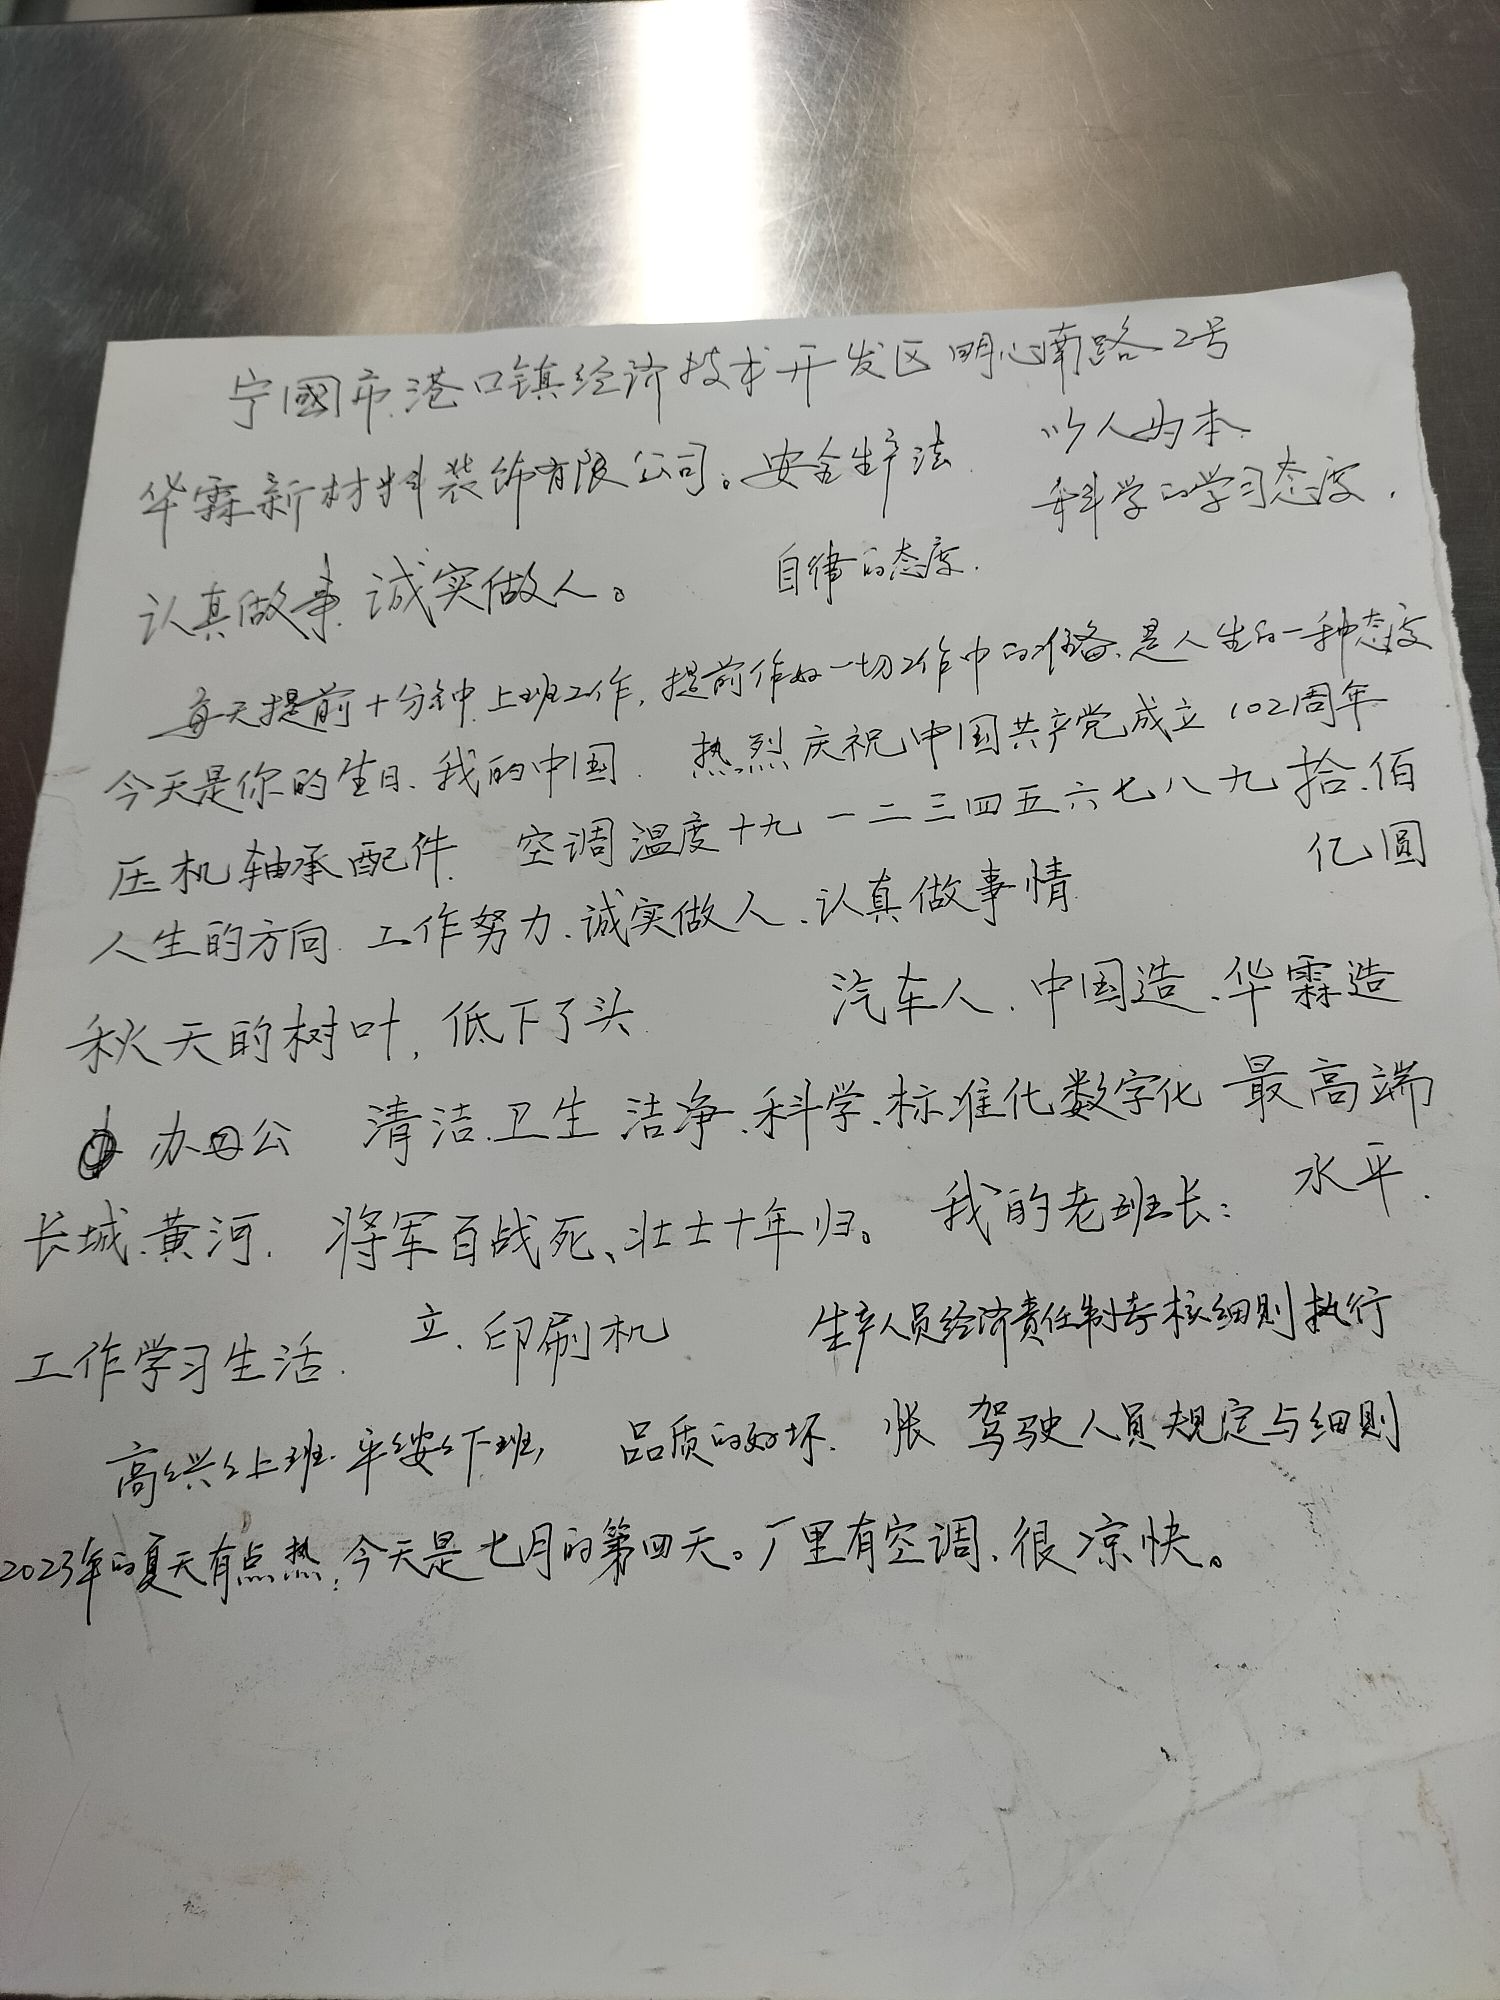 宁國市港口镇经济技术开发区明心南路2号
华霖新材料装饰有限公司。安全生产法 以人为本.
科学的学习态度.
认真做事 诚实做人。 自律的态度.
每天提前十分钟上班工作,提前作好一切工作中的准备、是人生的一种态度
今天是你的生日、我的中国. 热烈庆祝中国共产党成立102周年
压机轴承配件. 空调温度十九 一二三四五六七八九拾.佰
亿圆
人生的方向. 工作努力、诚实做人、认真做事情
秋天的树叶,低下了头 汽车人、中国造、华霖造
办公 清洁.卫生 洁净、科学、标准化数字化 最高端
水平.
长城、黄河. 将军百战死、壮士十年归。 我的老班长:
工作学习生活. 立.印刷机 生产人员经济责任制考核细则执行
高兴上班.平安下班, 品质的好坏. 张 驾驶人员规定与细则
2023年的夏天有点热,今天是七月的第四天。厂里有空调、很凉快。